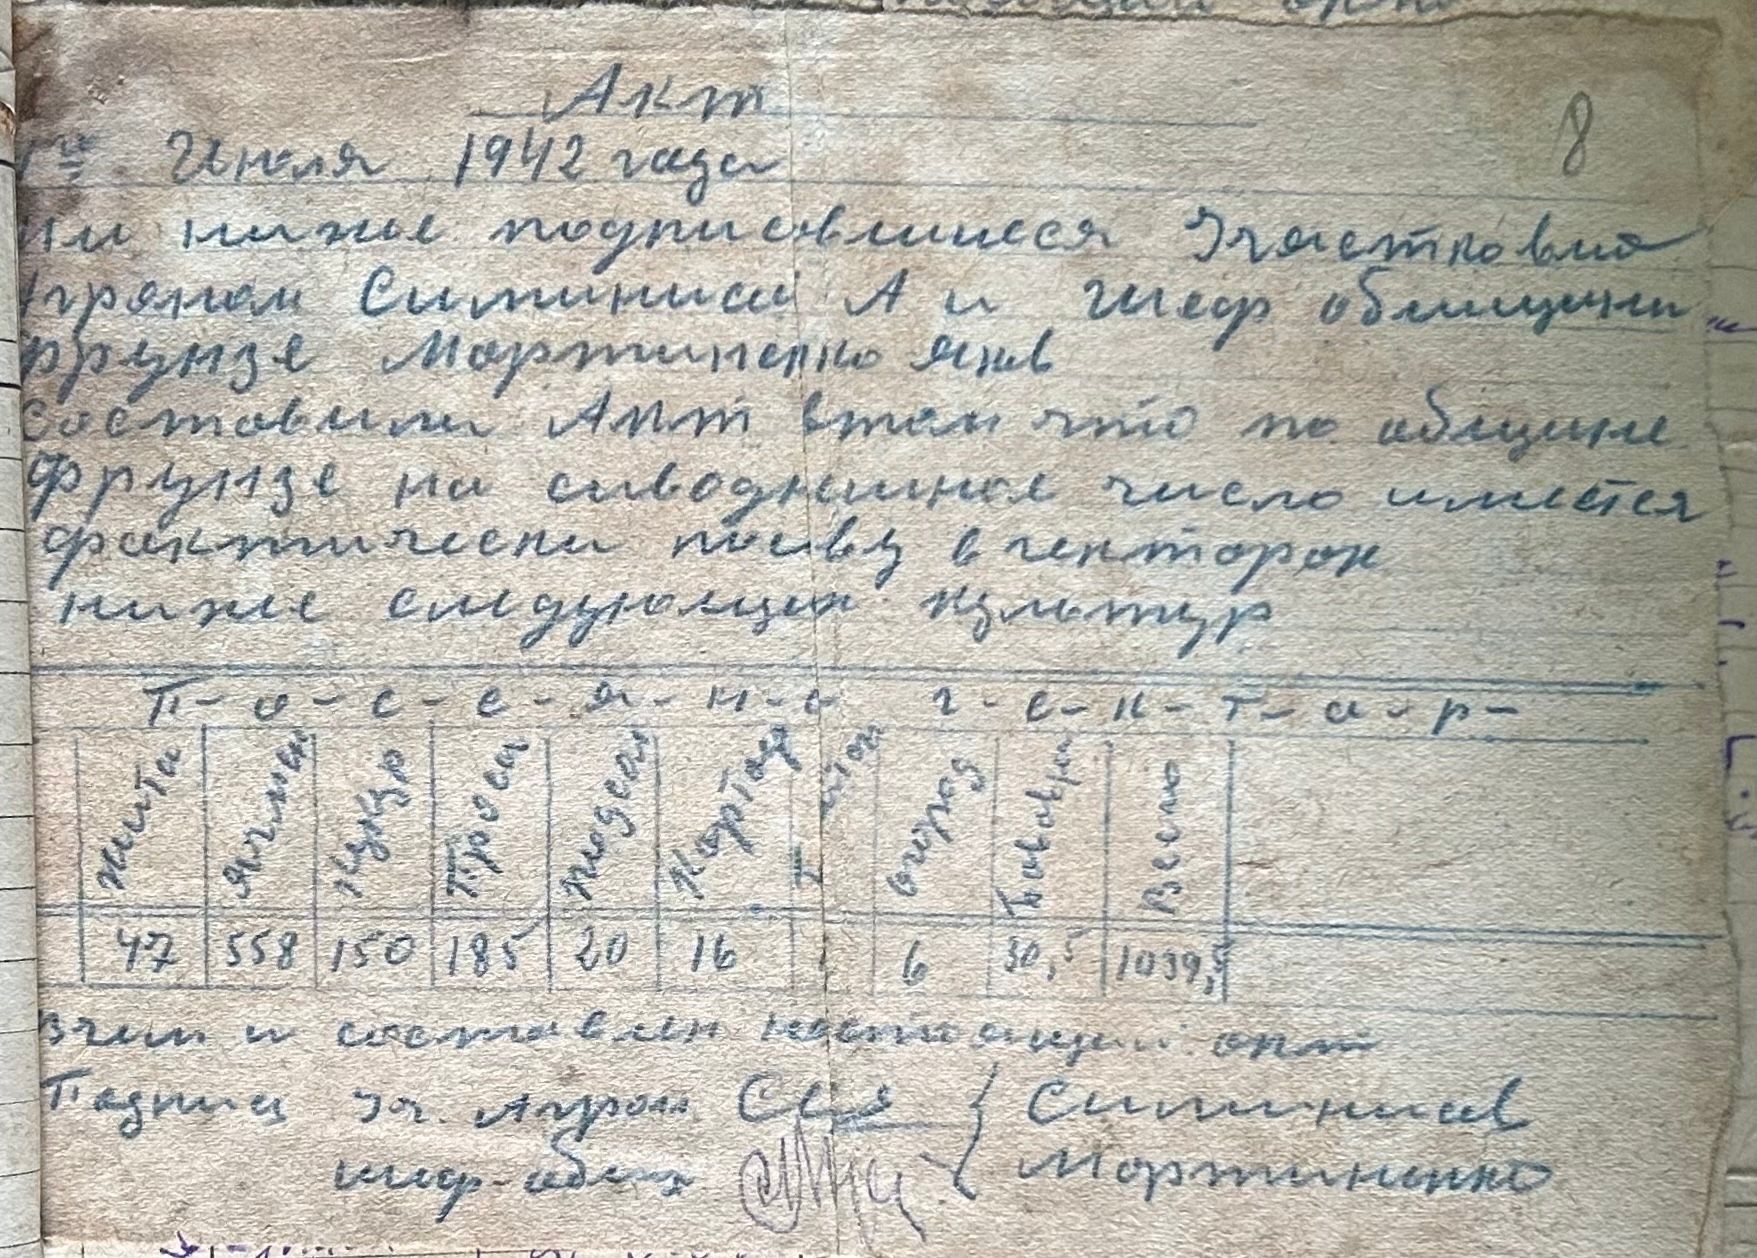 Акт
8
1го Июля 1942 года
Ми ниже подписавшиеся Участковий
Агроном Симиниси А и Шеф общини
Фрунзе Мортиненко Яков
составили Акт втом что по общине
Фрунзе на сиводнишное число имеется
фактически посеву в гекторох
ниже следующих культур
П-о-с-е-я-н-о г-е-к-т-а-р-
Жита Ячмен Кукур Трова Подсол Кортоф огород Бавовни Всего
47 558 150 185 20 16 6 30,5 1039,5
Вчем и составлен настоящий акт
Подписи Уч. Агроном
Симинисов
шеф-общи
Мортиненко